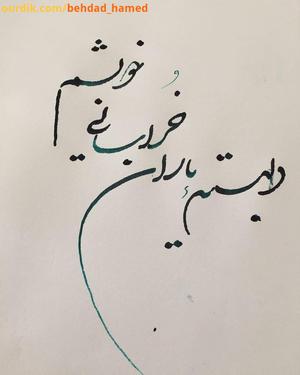 ourdik.com/behdad_hamed
دلبستهٔ یاران
خراسانی
خویشم